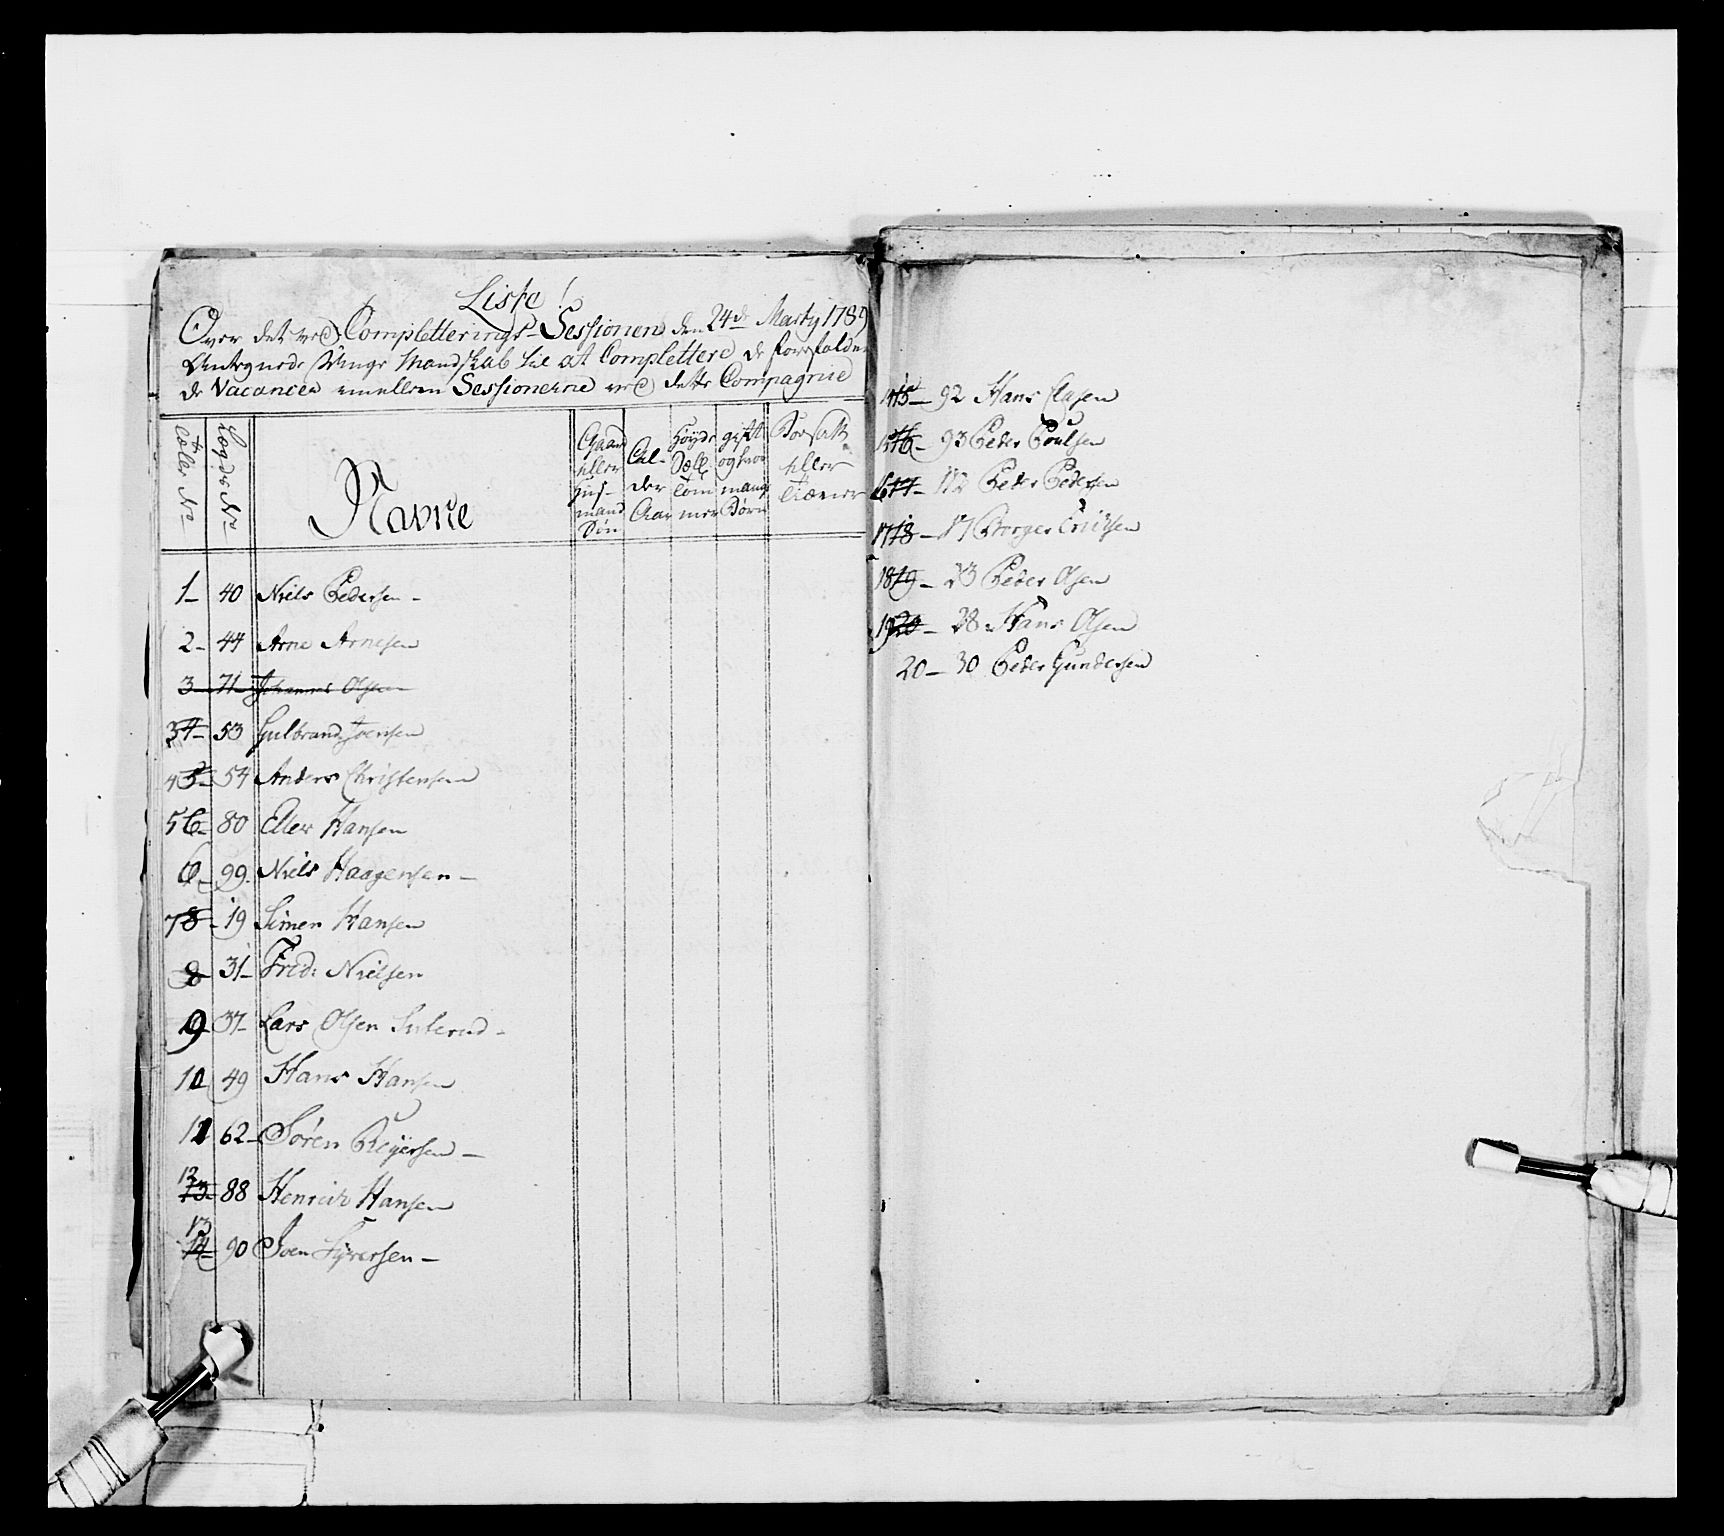 Liste!
Over det ved Completterings-Sessionen den 24de Marty 1789
Antegnede Unge Mandskab til at Complettere de forefalden
de Vacancer imellem Sessionerne ved dette Compagnie
Tøler No
Lægds No
Navne
Gaard
eller
Huus-
mand
Søn
Al-
der
Aar
Høyde
Sæll.
Tom
mer
gift
og hvor
mange
Børn
eller
1- 40 Niels Pedersen -
2- 44 Arne Arnesen
3- 71- Johannes Olsen
3 4- 53 Gulbrand Joensen
4 5- 54 Anders Christensen
5 6- 80 Eller Hansen
6- 99. Niels Haagensen -
7 8- 19 Simen Hansen
8 31- Fred: Nielsen
9 37- Lars Olsen Suterud -
10 49 Hans Hansen
11 62- Søren Reyersen -
12 13- 88 Henrich Hansen
13 14- 90 Joen Syversen -
14 15- 92 Hans Clasen
15 16- 93 Peder Poulsen
16 17- 112 Peder Pedersen
17 18- 17 Borger Erichsen
18 19- 23 Peder Olsen
19 20- 28 Hans Olsen
20- 30 Peder Gundersen